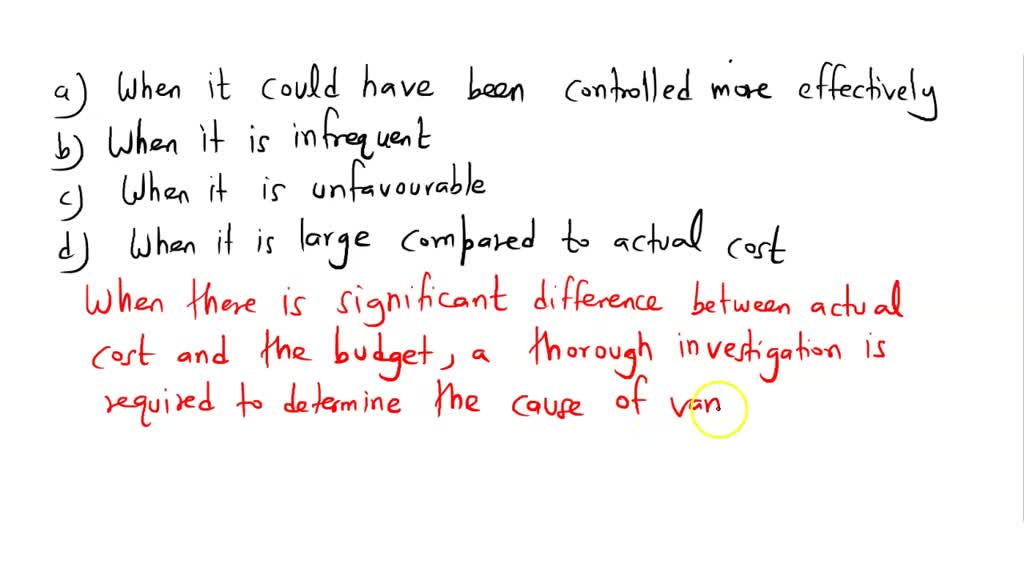 a) When it could have been controlled more effectively
b) When it is infrequent
c) When it is unfavourable
d) When it is large compared to actual cost
When there is significant difference between actual
cost and the budget, a thorough investigation is
required to determine the cause of van